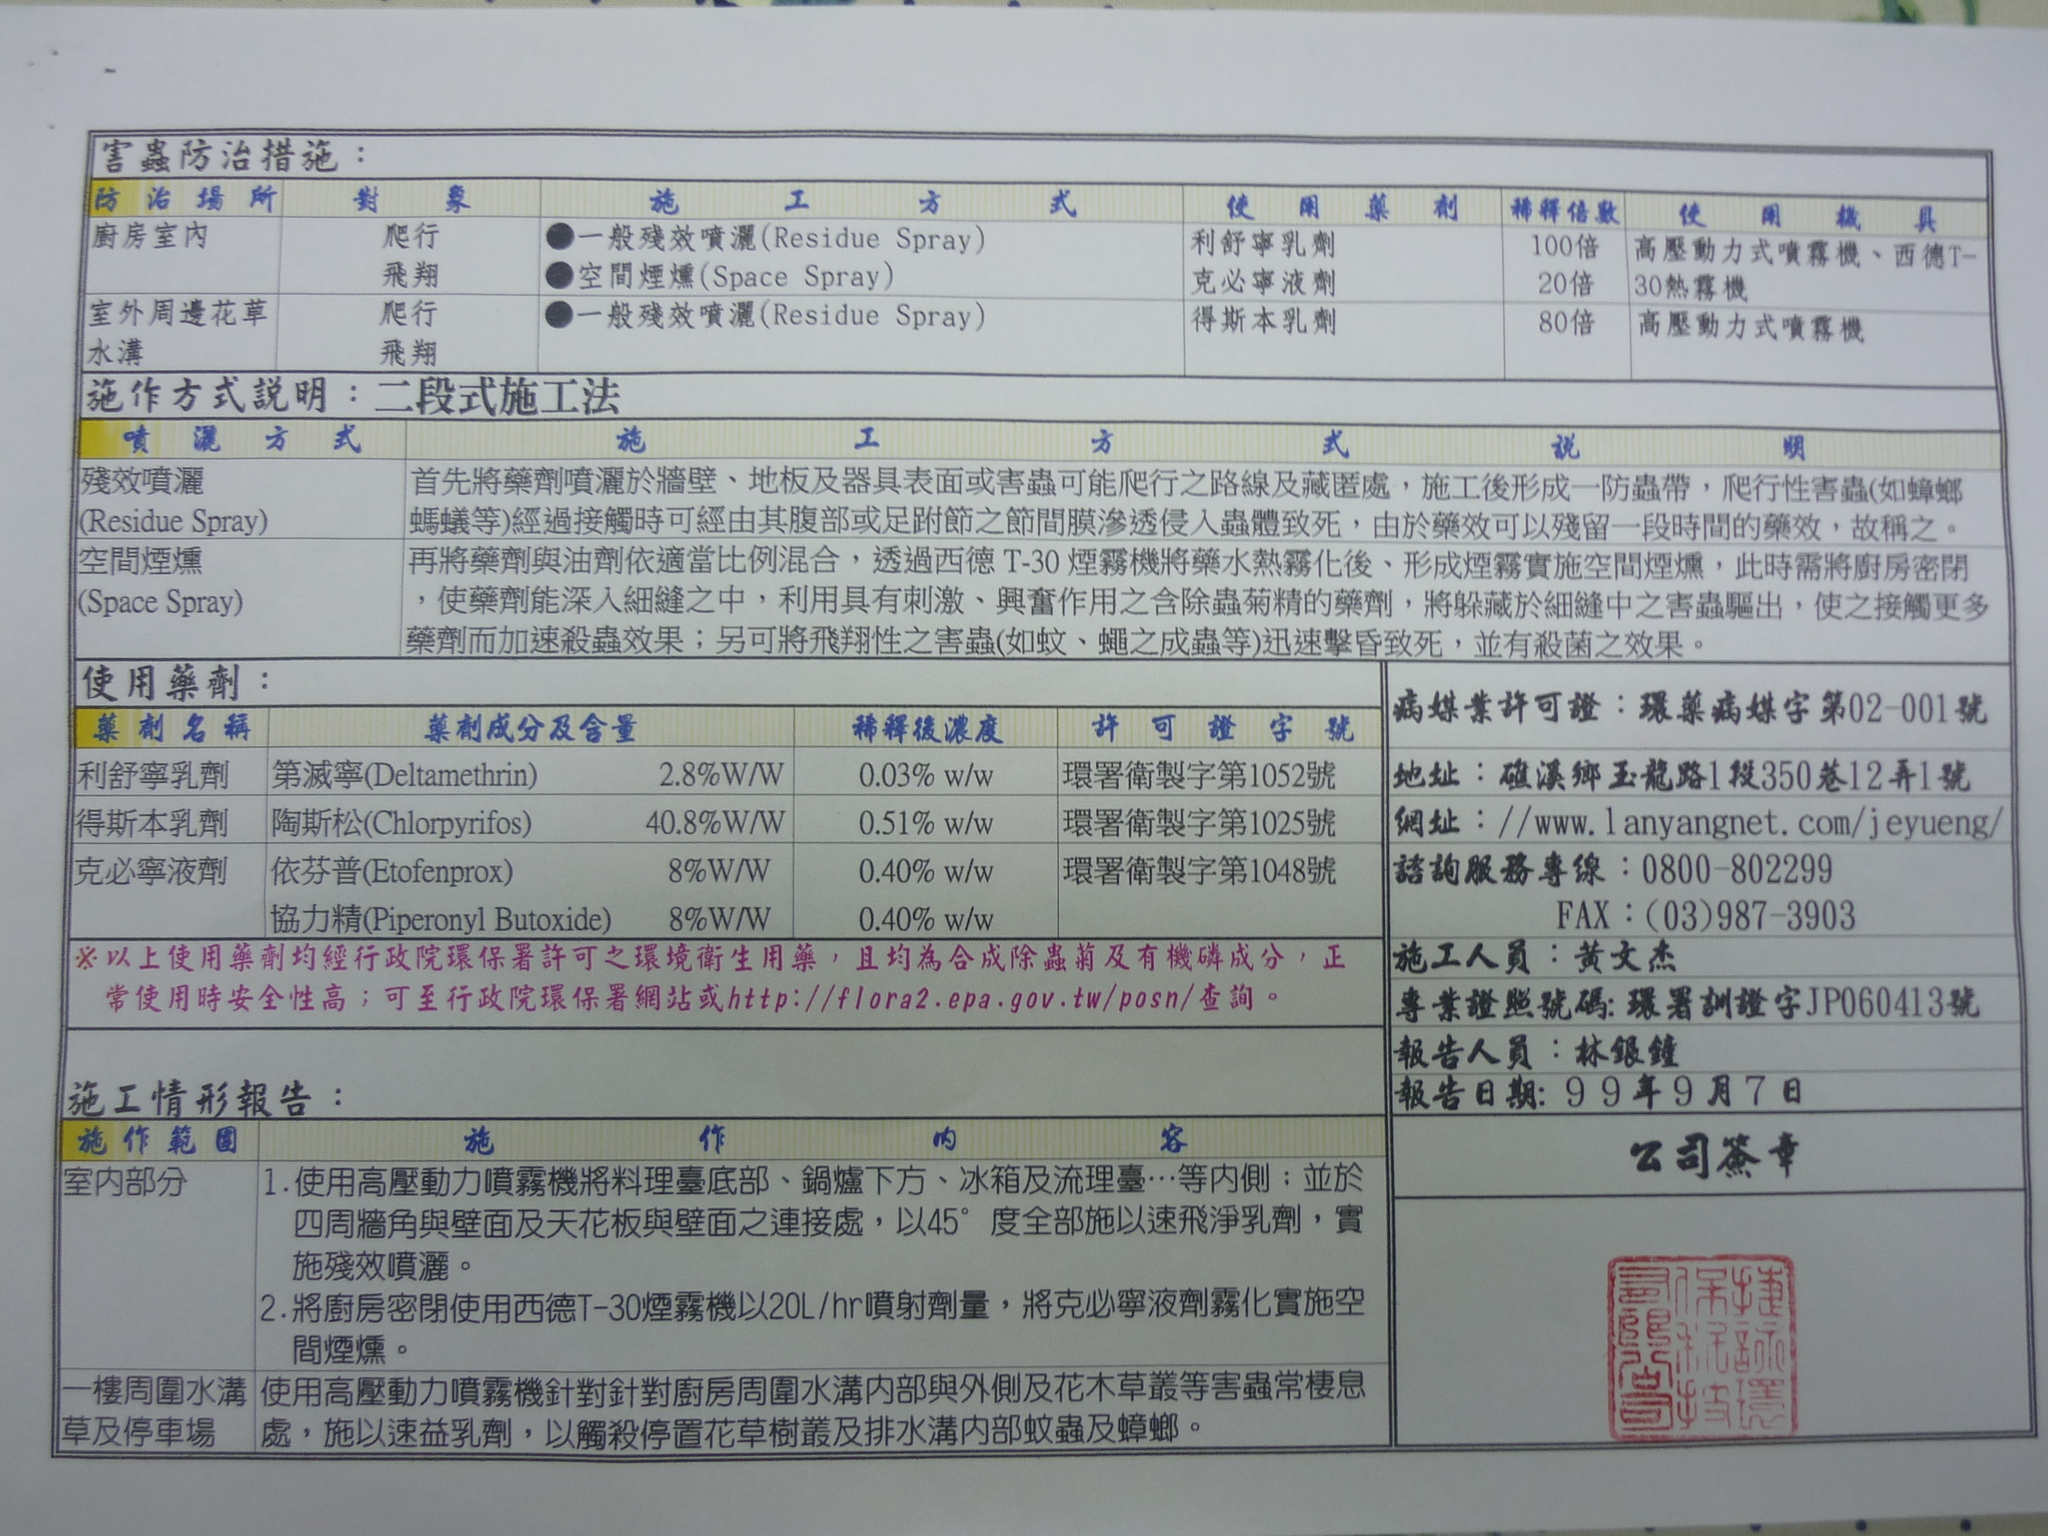 害蟲防治措施：
防治場所 對象 施工方式 使用藥劑 稀釋倍數 使用機具
廚房室內 爬行 ●一般殘效噴灑(Residue Spray) 利舒寧乳劑 100倍 高壓動力式噴霧機、西德T-
飛翔 ●空間煙燻(Space Spray) 克必寧液劑 20倍 30熱霧機
室外周邊花草 爬行 ●一般殘效噴灑(Residue Spray) 得斯本乳劑 80倍 高壓動力式噴霧機
水溝 飛翔
施作方式說明：二段式施工法
噴灑方式 施工方式說明
殘效噴灑 首先將藥劑噴灑於牆壁、地板及器具表面或害蟲可能爬行之路線及藏匿處，施工後形成一防蟲帶，爬行性害蟲(如蟑螂
(Residue Spray) 螞蟻等)經過接觸時可經由其腹部或足跗節之節間膜滲透侵入蟲體致死，由於藥效可以殘留一段時間的藥效，故稱之。
空間煙燻 再將藥劑與油劑依適當比例混合，透過西德 T-30 煙霧機將藥水熱霧化後、形成煙霧實施空間煙燻，此時需將廚房密閉
(Space Spray) ，使藥劑能深入細縫之中，利用具有刺激、興奮作用之含除蟲菊精的藥劑，將躲藏於細縫中之害蟲驅出，使之接觸更多
藥劑而加速殺蟲效果；另可將飛翔性之害蟲(如蚊、蠅之成蟲等)迅速擊昏致死，並有殺菌之效果。
使用藥劑：
藥劑名稱 藥劑成分及含量 稀釋後濃度 許可證字號
利舒寧乳劑 第滅寧(Deltamethrin) 2.8%W/W 0.03% w/w 環署衛製字第1052號
得斯本乳劑 陶斯松(Chlorpyrifos) 40.8%W/W 0.51% w/w 環署衛製字第1025號
克必寧液劑 依芬普(Etofenprox) 8%W/W 0.40% w/w 環署衛製字第1048號
協力精(Piperonyl Butoxide) 8%W/W 0.40% w/w
※以上使用藥劑均經行政院環保署許可之環境衛生用藥，且均為合成除蟲菊及有機磷成分，正
常使用時安全性高；可至行政院環保署網站或http://flora2.epa.gov.tw/posn/查詢。
施工情形報告：
施作範圍 施作內容
室內部分 1.使用高壓動力噴霧機將料理臺底部、鍋爐下方、冰箱及流理臺…等內側；並於
四周牆角與壁面及天花板與壁面之連接處，以45°度全部施以速飛淨乳劑，實
施殘效噴灑。
2.將廚房密閉使用西德T-30煙霧機以20L/hr噴射劑量，將克必寧液劑霧化實施空
間煙燻。
一樓周圍水溝 使用高壓動力噴霧機針對針對廚房周圍水溝內部與外側及花木草叢等害蟲常棲息
草及停車場 處，施以速益乳劑，以觸殺停置花草樹叢及排水溝內部蚊蟲及蟑螂。
病媒業許可證：環藥病媒字第02-001號
地址：礁溪鄉玉龍路1段350巷12弄1號
網址：//www.lanyangnet.com/jeyueng/
諮詢服務專線：0800-802299
FAX：(03)987-3903
施工人員：黃文杰
專業證照號碼:環署訓證字JP060413號
報告人員：林銀鐘
報告日期:99年9月7日
公司簽章